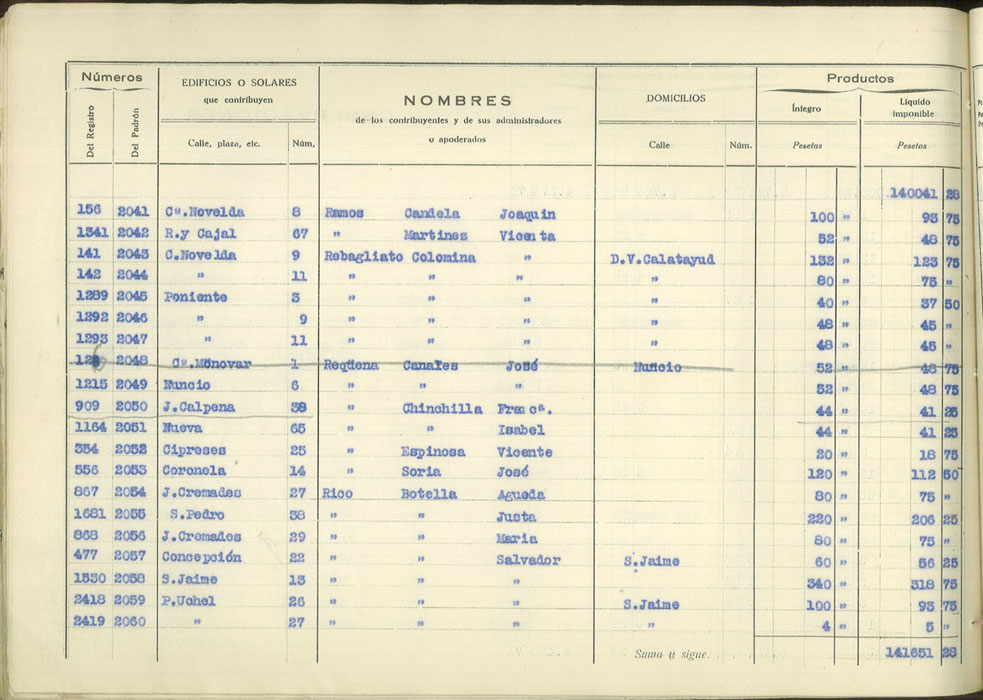 Números
EDIFICIOS O SOLARES
que contribuyen
NOMBRES
de los contribuyentes y de sus administradores
o apoderados
DOMICILIOS
Productos
Del Registro
Del Padrón
Calle, plaza, etc. Núm.
Calle Núm.
Íntegro
Líquido imponible
Pesetas Pesetas
140041 28
156 2041 Cº.Novelda 8 Ramos Candela Joaquin 100 " 93 75
1341 2042 R.y Cajal 67 " Martinez Vicenta 52 " 48 75
141 2043 C.Novelda 9 Rebagliato Colomina " D.V.Calatayud 132 " 123 75
142 2044 " 11 " " " " 80 " 75 "
1289 2045 Poniente 3 " " " " 40 " 37 50
1292 2046 " 9 " " " " 48 " 45 "
1293 2047 " 11 " " " " 48 " 45 "
2048 Cº.Monovar 1 Reqùena Canales José Nuncio 52 " 48 75
1215 2049 Nuncio 6 " " " 52 " 48 75
909 2050 J.Calpena 38 " Chinchilla Francª. 44 " 41 25
1164 2051 Nueva 65 " " Isabel 44 " 41 25
354 2052 Cipreses 25 " Espinosa Vicente 20 " 18 75
556 2053 Coronela 14 " Soria José 120 " 112 50
867 2054 J.Cremades 27 Rico Botella Agueda 80 " 75 "
1681 2055 S.Pedro 38 " " Justa 220 " 206 25
868 2056 J.Cremades 29 " " Maria 80 " 75 "
477 2057 Concepción 22 " " Salvador S.Jaime 60 " 56 25
1530 2058 S.Jaime 13 " " " 340 " 318 75
2418 2059 P.Uchel 26 " " " S.Jaime 100 " 93 75
2419 2060 " 27 " " " " 4 " 5 "
Suma y sigue. 141651 28